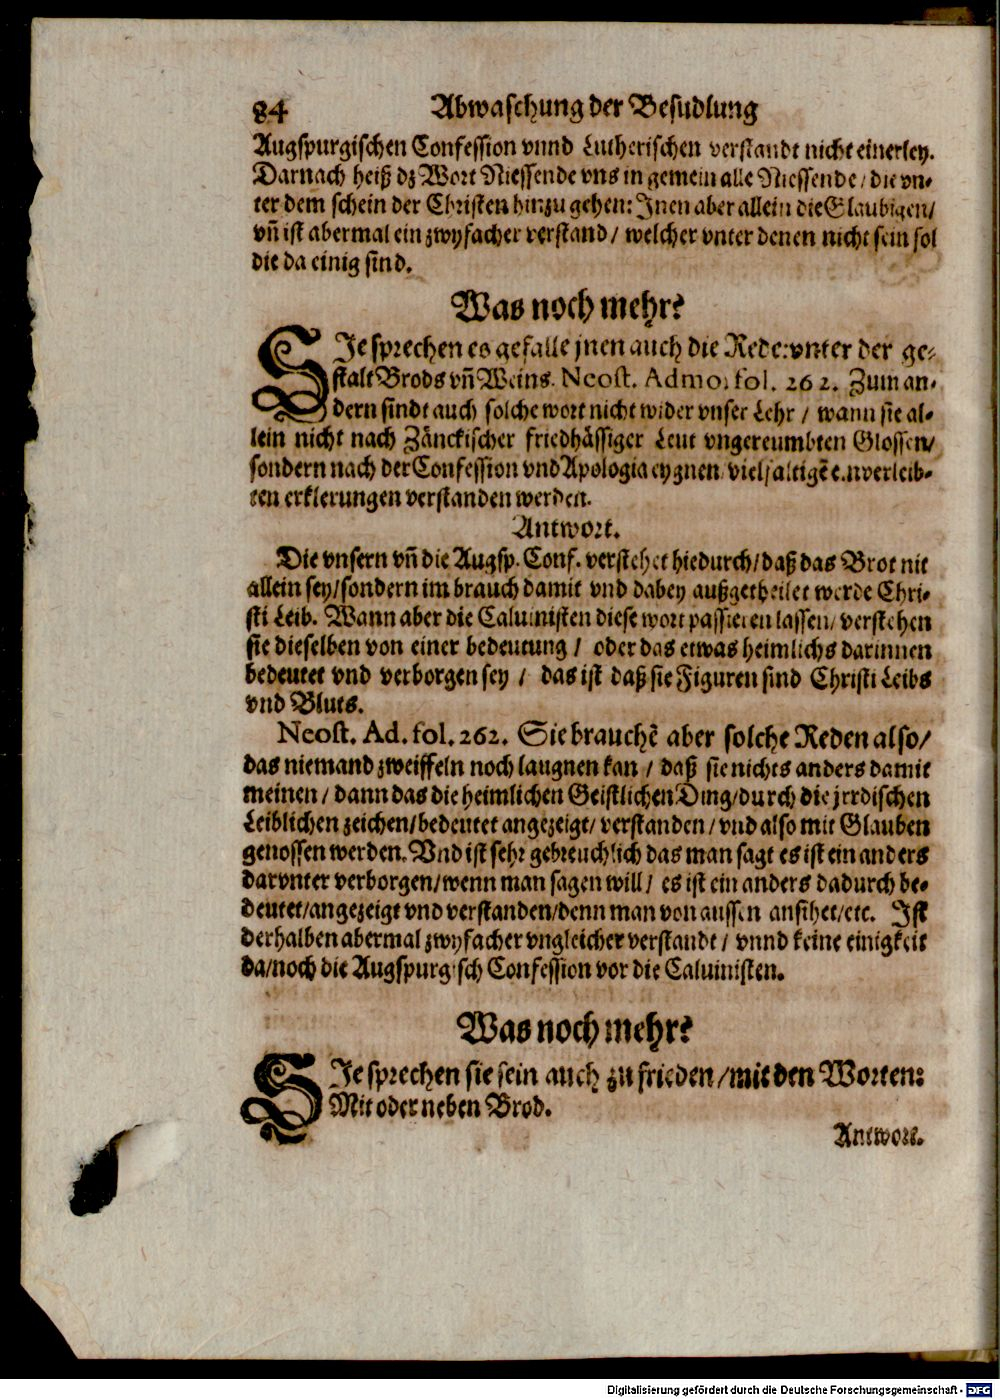 84 Abwaschung der Besudlung
Augspurgischen Confession vnnd Lutherischen verstandt nicht einerley.
Darnach heiß dz Wort Niessende vns in gemein alle Niessende / die vn-
ter dem schein der Christen hinzu gehen: Jnen aber allein die Glaubigen/
vñ ist abermal ein zwyfacher verstand / welcher vnter denen nicht sein sol
die da einig sind.
Was noch mehr?
SJe sprechen es gefalle jnen auch die Rede: vnter der ge-
stalt Brods vñ Weins. Neost. Admo. fol. 262. Zum an-
dern sindt auch solche wort nicht wider vnser Lehr / wann sie al-
lein nicht nach Zänckischer friedhässiger Leut vngereumbten Glossen/
sondern nach der Confession vnd Apologia eygnen vielfaltigẽ einverleib-
ten erklerungen verstanden werden.
Antwort.
Die vnsern vñ die Augsp. Conf. verstehet hiedurch/ daß das Brot nit
allein sey/ sondern im brauch damit vnd dabey außgetheilet werde Chri-
sti Leib. Wann aber die Caluinisten diese wort passieren lassen/ verstehen
sie dieselben von einer bedeutung / oder das etwas heimlichs darinnen
bedeutet vnd verborgen sey / das ist daß sie Figuren sind Christi Leibs
vnd Bluts.
Neost. Ad. fol. 262. Sie brauchẽ aber solche Reden also/
das niemand zweiffeln noch laugnen kan / daß sie nichts anders damit
meinen / dann das die heimlichen Geistlichen Ding/ durch die jrrdischen
Leiblichen zeichen/ bedeutet angezeigt/ verstanden / vnd also mit Glauben
genossen werden. Vnd ist sehr gebreuchlich das man sagt es ist ein anders
darvnter verborgen/ wenn man sagen will / es ist ein anders dadurch be-
deutet/ angezeigt vnd verstanden/ denn man von aussen ansihet/ etc. Jst
derhalben abermal zwyfacher vngleicher verstandt / vnnd keine einigkeit
da/ noch die Augspurgisch Confession vor die Caluinisten.
Was noch mehr?
SJe sprechen sie sein auch zu frieden / mit den Worten:
Mit oder neben Brod.
Antwort.
Digitalisierung gefördert durch die Deutsche Forschungsgemeinschaft - DFG